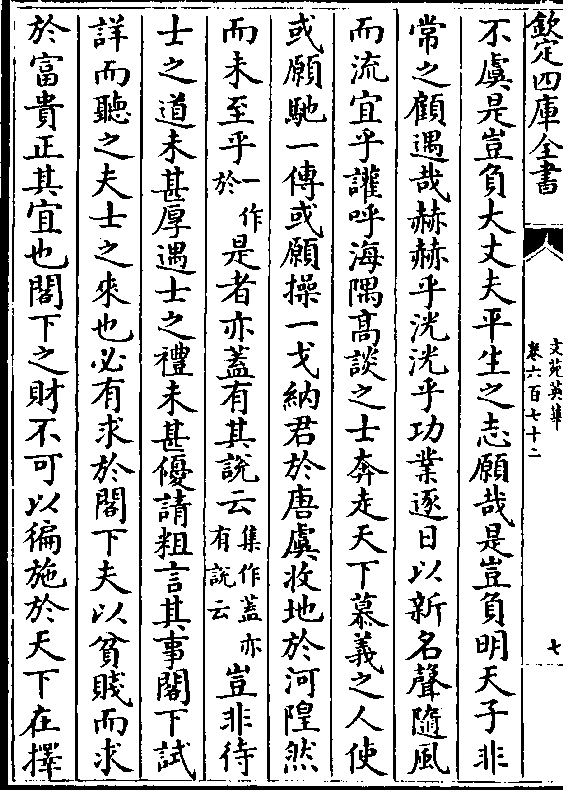 欽定四庫全書
文苑英華
卷六百七十二
七
不虞是豈負大丈夫平生之志願哉是豈負明天子非
常之顧遇哉赫赫乎洸洸乎功業逐日以新名聲隨風
而流宜乎讙呼海隅高談之士奔走天下慕義之人使
或願馳一傳或願操一戈納君於唐虞收地於河隍然
而未至乎一作於是者亦蓋有其說云集作蓋亦有說云豈非待
士之道未甚厚遇士之禮未甚優請粗言其事閣下試
詳而聽之夫士之來也必有求於閣下夫以貧賤而求
於富貴正其宜也閣下之財不可以徧施於天下在擇